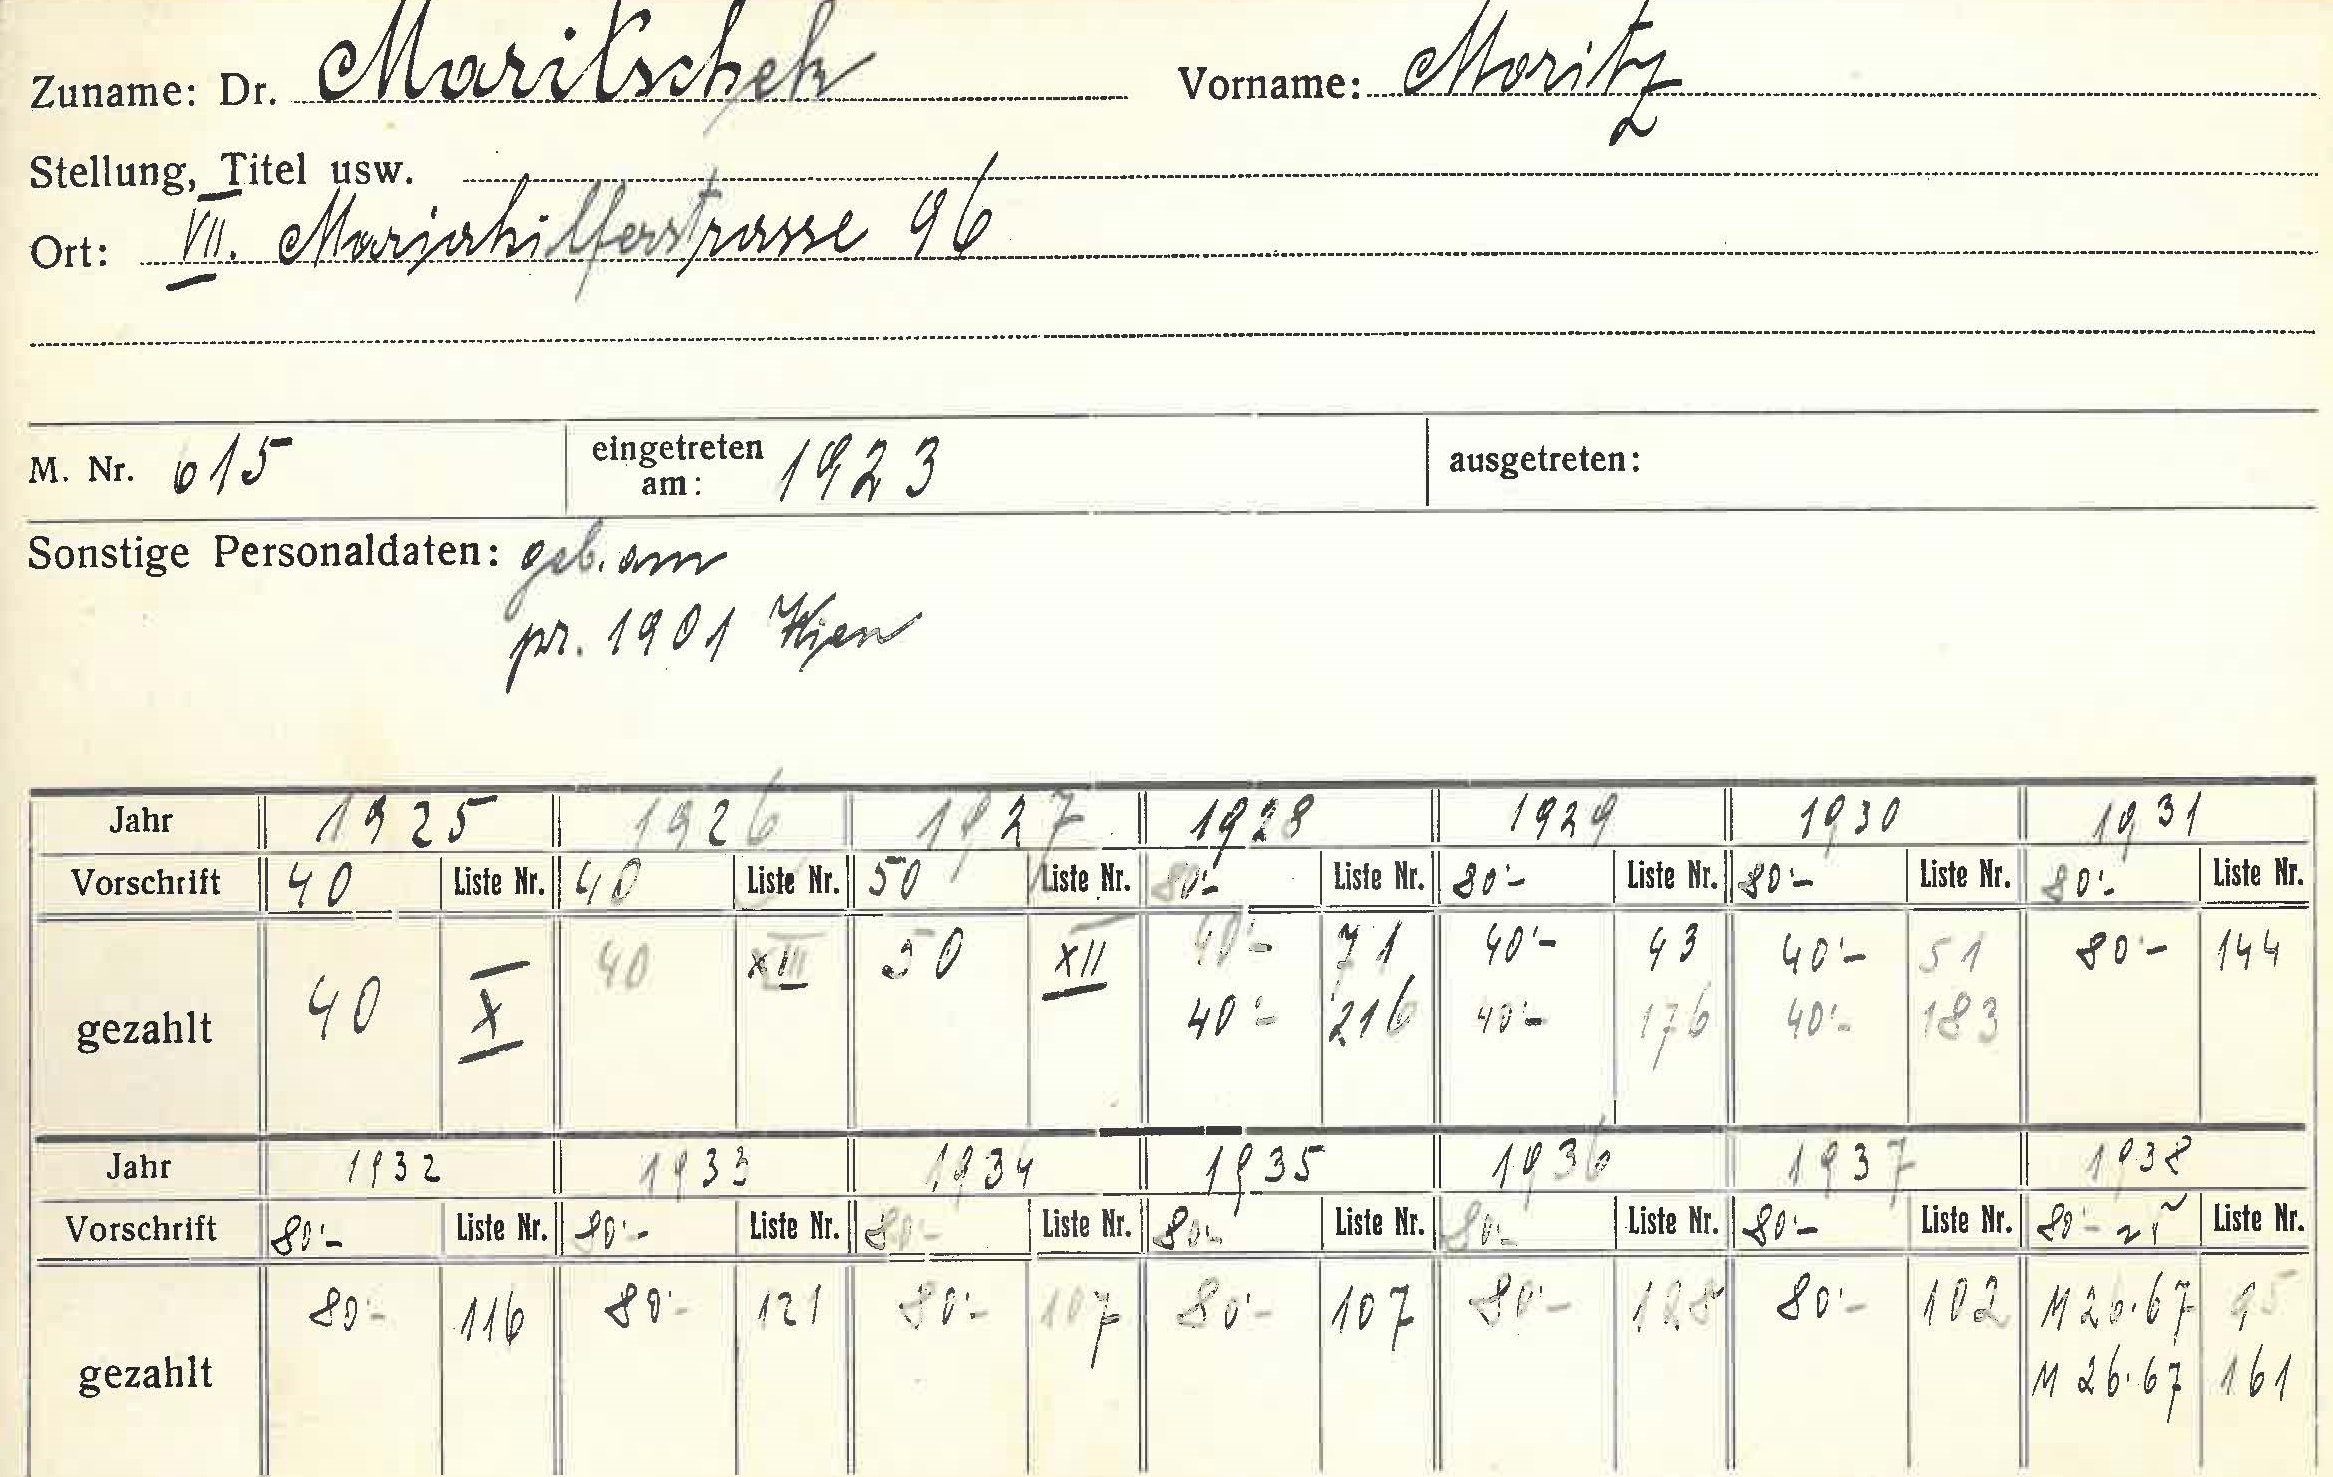 Zuname: Dr. Maritschek Vorname: Moritz
Stellung, Titel usw.
Ort: VII. Mariahilferstrasse 96
M. Nr. 615 eingetreten am: 1923 ausgetreten:
Sonstige Personaldaten: geb. am
pr. 1901 Wien
Jahr 1925 1926 1927 1928 1929 1930 1931
Vorschrift 40 Liste Nr. 40 Liste Nr. 50 Liste Nr. 80·- Liste Nr. 80·- Liste Nr. 80·- Liste Nr. 80·- Liste Nr.
gezahlt 40 X 40 XII 50 XII 40·- 71 40·- 93 40·- 51 80·- 144
40·- 216 40·- 176 40·- 183
Jahr 1932 1933 1934 1935 1936 1937 1938
Vorschrift 80·- Liste Nr. 80·- Liste Nr. 80·- Liste Nr. 80·- Liste Nr. 80·- Liste Nr. 80·- Liste Nr. 80·- Liste Nr.
gezahlt 80·- 116 80·- 121 80·- 107 80·- 107 80·- 128 80·- 102 M 26·67 95
M 26·67 161